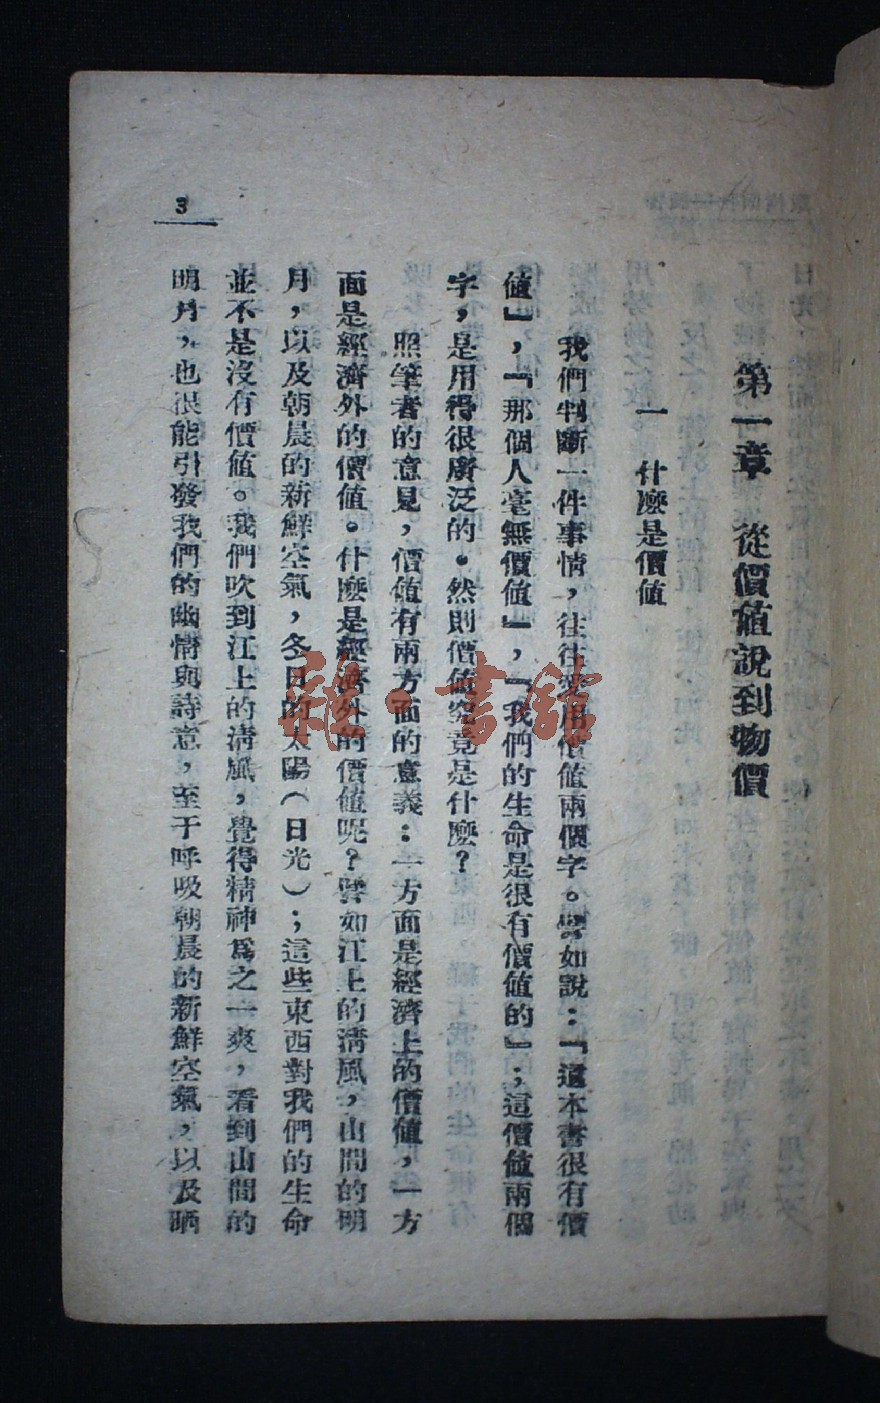 第一章 從價值說到物價
一 什麼是價值
我們判斷一件事情，往往要用價值兩個字。譬如說：『這本書很有價
值』，『那個人毫無價值』，『我們的生命是很有價值的』；這價值兩個
字，是用得很廣泛的。然則價值究竟是什麼？
照筆者的意見，價值有兩方面的意義：一方面是經濟上的價值，一方
面是經濟外的價值。什麼是經濟外的價值呢？譬如江上的清風，山間的明
月，以及朝晨的新鮮空氣，冬日的太陽（日光）；這些東西對我們的生命
並不是沒有價值。我們吹到江上的清風，覺得精神爲之一爽，看到山間的
明月，也很能引發我們的幽情與詩意，至于呼吸朝晨的新鮮空氣，以及晒
3
書館